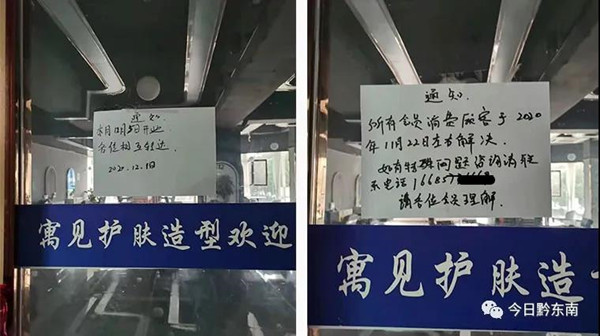 通知
本月 5日开业
各位相互转达
2020.12.1日
寓见护肤造型欢迎
通知
所有会员消费
定于2020
年11月22日在店解决.
如有特殊问题咨询请联
系电话 16685
请各位会员理解.
寓见护肤造
今日黔东南